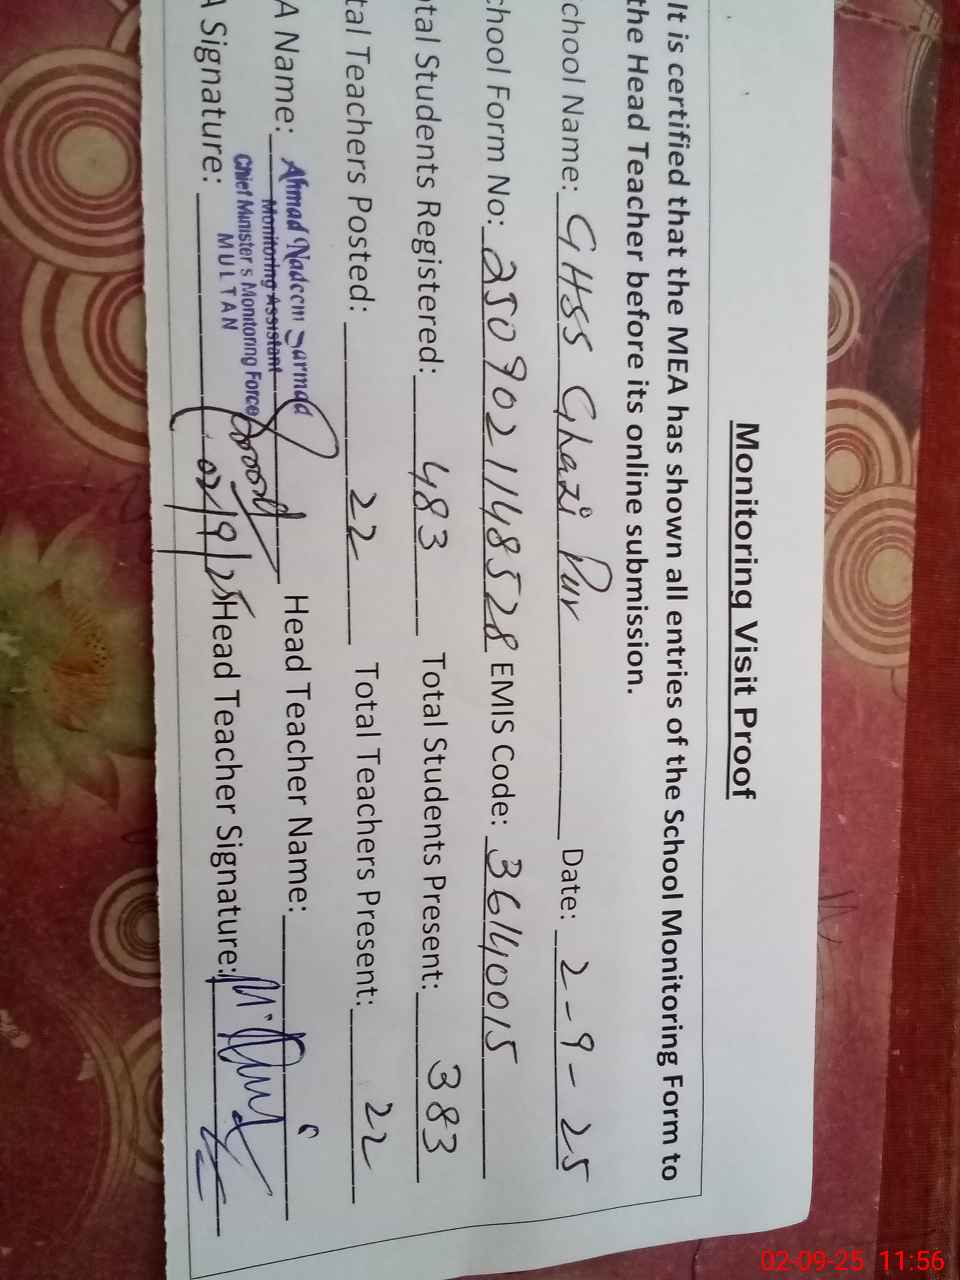 Monitoring Visit Proof
It is certified that the MEA has shown all entries of the School Monitoring Form to
the Head Teacher before its online submission.
chool Name: GHSS Ghazi Pur Date: 2-9-25
chool Form No: 2509021148528 EMIS Code: 36140015
otal Students Registered: 483 Total Students Present: 383
tal Teachers Posted: 22 Total Teachers Present: 22
A Name: Ahmad Nadeem Sarmad Head Teacher Name:
Monitoring Assistant
Chief Minister's Monitoring Force
MULTAN
A Signature: 02/9/25 Head Teacher Signature:
02-09-25 11:56